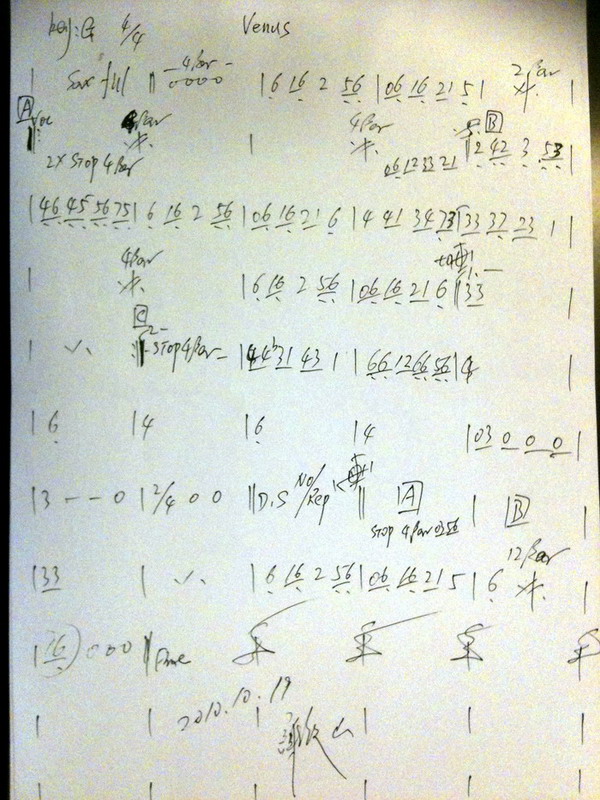 key: G 4/4 Venus
| Sax fill || -4Bar- 0000 | 6 16 2 56 | 06 16 21 5 | 2Bar ⁒ |
A 4Bar ⁒ | 4Bar ⁒ B
2X STOP 4Bar 06 12 33 21 || 2 42 3 .53 |
| 46 45 56 75 | 6 16 2 56 | 06 16 21 6 | 4 41 34 73 | 33 37 23 1 |
| 4Bar ⁒ | 6 16 2 56 | 06 16 21 6 || 33 |
C
| ⁒ || 2- -STOP 4Bar- | 44 31 43 1 | 66 12 66 56 |
| 6 | 4 | 6 | 4 | 03 0 0 0
| 3 - - 0 | 2/4 0 0 || D.S No/Rep || A | B |
STOP 4Bar 0356
| 33 | ⁒ | 6 16 2 56 | 06 16 21 5 | 6 12Bar ⁒ |
| 76 000 || Fine
2010.10.19